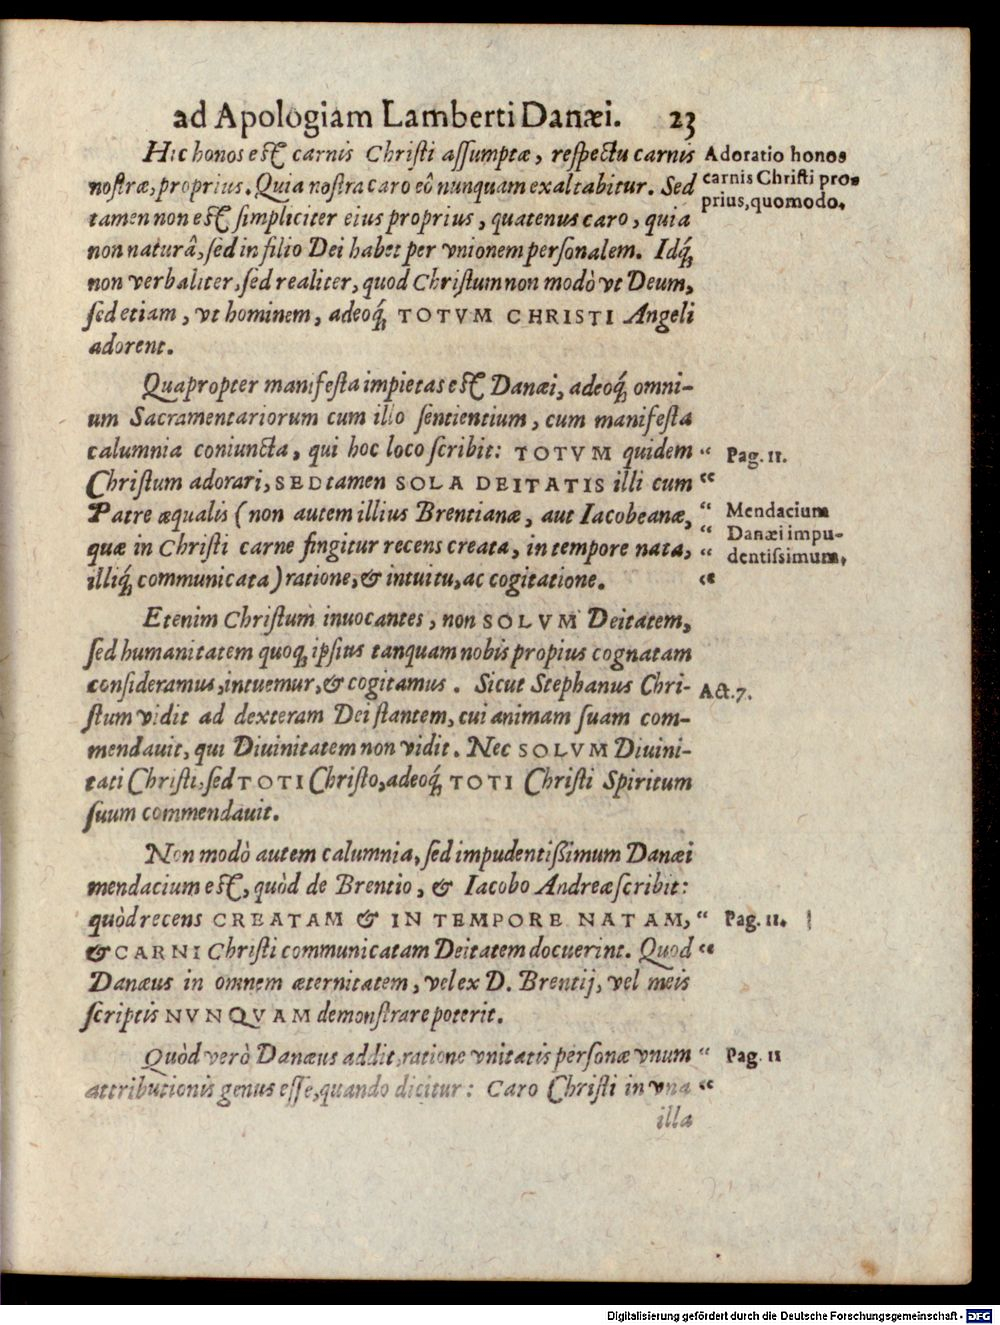 ad Apologiam Lamberti Danæi. 23
Hic honos est carnis Christi assumptæ, respectu carnis
Adoratio honos
nostræ, proprius. Quia nostra caro eô nunquam exaltabitur. Sed
carnis Christi pro-
tamen non est simpliciter eius proprius, quatenus caro, quia
prius, quomodo.
non naturâ, sed in filio Dei habet per vnionem personalem. Idq́;
non verbaliter, sed realiter, quod Christum non modò vt Deum,
sed etiam, vt hominem, adeoq́; TOTVM CHRISTI Angeli
adorent.
Quapropter manifesta impietas est Danæi, adeoq́; omni-
um Sacramentariorum cum illo sentientium, cum manifesta
calumnia coniuncta, qui hoc loco scribit: TOTVM quidem “ Pag. 11.
Christum adorari, SED tamen SOLA DEITATIS illi cum “
Patre æqualis (non autem illius Brentianæ, aut Iacobeanæ, “ Mendacium
quæ in Christi carne fingitur recens creata, in tempore nata, “ Danæi impu-
dentissimum.
illiq́; communicata) ratione, & intuitu, ac cogitatione. “
Etenim Christum inuocantes, non SOLVM Deitatem,
sed humanitatem quoq; ipsius tanquam nobis propius cognatam
consideramus, intuemur, & cogitamus. Sicut Stephanus Chri- Act. 7.
stum vidit ad dexteram Dei stantem, cui animam suam com-
mendauit, qui Diuinitatem non vidit. Nec SOLVM Diuini-
tati Christi, sed TOTI Christo, adeoq́; TOTI Christi Spiritum
suum commendauit.
Non modò autem calumnia, sed impudentißimum Danæi
mendacium est, quòd de Brentio, & Iacobo Andreæ scribit:
quòd recens CREATAM & IN TEMPORE NATAM, “ Pag. 11.
& CARNI Christi communicatam Deitatem docuerint. Quod “
Danæus in omnem æternitatem, vel ex D. Brentij, vel meis
scriptis NVNQVAM demonstrare poterit.
Quòd verò Danæus addit, ratione vnitatis personæ vnum “ Pag. 11
attributionis genus esse, quando dicitur: Caro Christi in vna “
illa
Digitalisierung gefördert durch die Deutsche Forschungsgemeinschaft - DFG